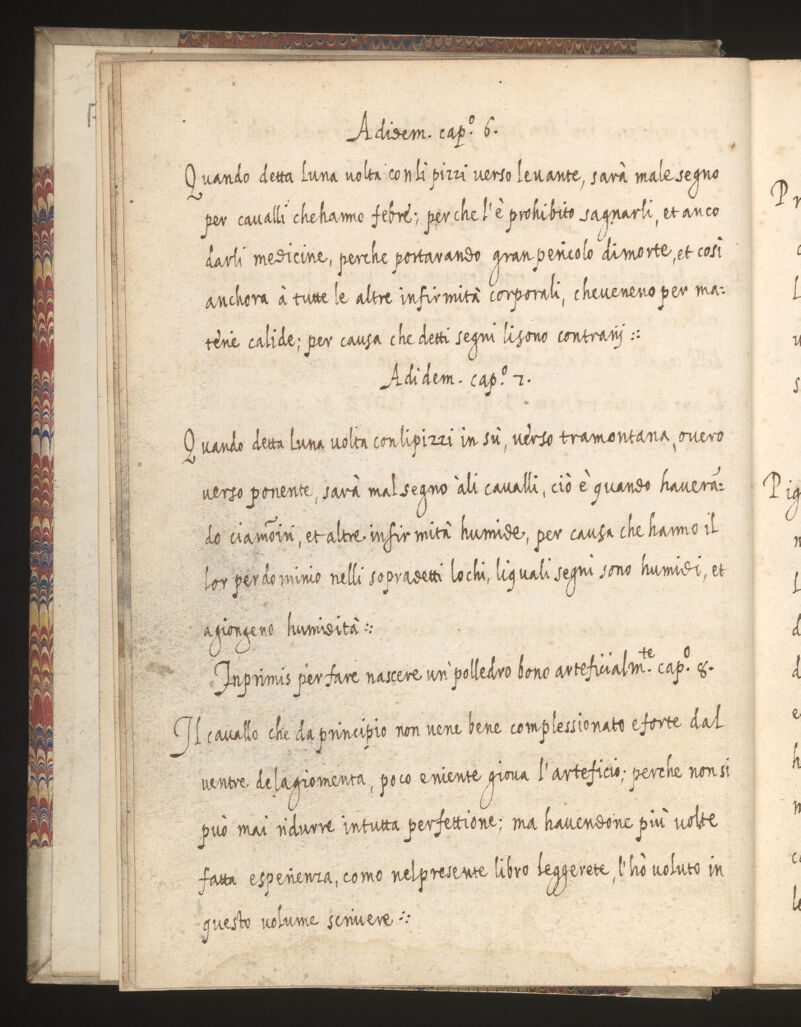 Adidem. cap.º 6.
Quando detta Luna uolta con li pizzi uerso leuante, sarà male segno
per caualli che hanno febre; per che l'è prohibito sagnarli, et anco
darli medicine, perche portarando gran pericolo di morte, et così
anchora à tutte le altre infirmità corporali, che ueneno per ma:
terie calide; per causa che detti segni li sono contrarij :~
Adidem. cap.º 7.
Quando detta Luna uolta con li pizzi in sù, uerso tramontana, ouero
uerso ponente, sarà mal segno àli caualli, ciò è quando hauerā:
do ciamōiri, et altre infirmità humide, per causa che hanno il
lor perdominio nelli sopradetti lochi, li quali segni sono humidi, et
agiongeno humidità :~
Inprimis per fare nascere un polledro bono arteficialm.te cap.º 8.
Il cauallo che da principio non uene bene complessionato e forte dal
uentre de la giomenta, poco e niente gioua l'arteficio; perche non si
può mai ridurre in tutta perfettione; ma hauendone più uolte
fatta esperienza, como nel presente libro leggerete, l'hò uoluto in
questo uolume scriuere :~
P
L
u
s
Pig
n
L
d
d
e
h
n